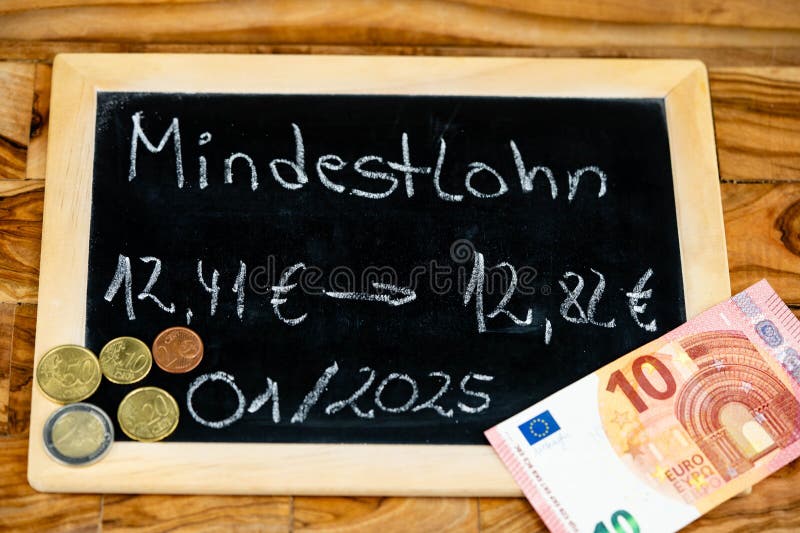 Mindestlohn
12,41 € → 12,82 €
01/2025
50
10
2
20
2
10
EURO
EYPΩ
10
dreamstime